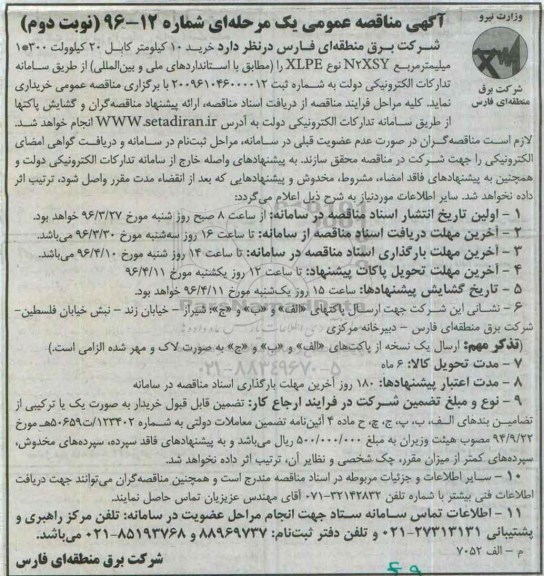 وزارت نیرو
شرکت برق
منطقه‌ای فارس
آگهی مناقصه عمومی یک مرحله‌ای شماره ۱۲-۹۶ (نوبت دوم)
شرکت برق منطقه‌ای فارس درنظر دارد خرید ۱۰ کیلومتر کابل ۲۰ کیلوولت ۳۰۰*۱
میلیمترمربع N۲XSY نوع XLPE را (مطابق با استانداردهای ملی و بین‌المللی) از طریق سامانه
تدارکات الکترونیکی دولت به شماره ثبت ۲۰۰۹۶۱۰۴۶۰۰۰۰۱۲ با برگزاری مناقصه عمومی خریداری
نماید. کلیه مراحل فرایند مناقصه از دریافت اسناد مناقصه، ارائه پیشنهاد مناقصه‌گران و گشایش پاکتها
از طریق سامانه تدارکات الکترونیکی دولت به آدرس WWW.setadiran.ir انجام خواهد شد.
لازم است مناقصه‌گران در صورت عدم عضویت قبلی در سامانه، مراحل ثبت‌نام در سامانه و دریافت گواهی امضای
الکترونیکی را جهت شرکت در مناقصه محقق سازند. به پیشنهادهای واصله خارج از سامانه تدارکات الکترونیکی دولت و
همچنین به پیشنهادهای فاقد امضاء، مشروط، مخدوش و پیشنهادهایی که بعد از انقضاء مدت مقرر واصل شود، ترتیب اثر
داده نخواهد شد. سایر اطلاعات موردنیاز به شرح ذیل اعلام می‌گردد:
۱ - اولین تاریخ انتشار اسناد مناقصه در سامانه: از ساعت ۸ صبح روز شنبه مورخ ۹۶/۳/۲۷ خواهد بود.
۲ - آخرین مهلت دریافت اسناد مناقصه از سامانه: تا ساعت ۱۶ روز سه‌شنبه مورخ ۹۶/۳/۳۰ می‌باشد.
۳ - آخرین مهلت بارگذاری اسناد مناقصه در سامانه: تا ساعت ۱۴ روز شنبه مورخ ۹۶/۴/۱۰ می‌باشد.
۴ - آخرین مهلت تحویل پاکات پیشنهاد: تا ساعت ۱۲ روز یکشنبه مورخ ۹۶/۴/۱۱
۵ - تاریخ گشایش پیشنهادها: ساعت ۱۵ روز یک‌شنبه مورخ ۹۶/۴/۱۱ خواهد بود.
۶ - نشانی این شرکت جهت ارسال پاکتهای «الف» و «ب» و «ج»: شیراز - خیابان زند - نبش خیابان فلسطین-
شرکت برق منطقه‌ای فارس - دبیرخانه مرکزی
(تذکر مهم: ارسال یک نسخه از پاکت‌های «الف» و «ب» و «ج» به صورت لاک و مهر شده الزامی است.)
۷ - مدت تحویل کالا: ۶ ماه
۸ - مدت اعتبار پیشنهادها: ۱۸۰ روز آخرین مهلت بارگذاری اسناد مناقصه در سامانه
۹ - نوع و مبلغ تضمین شرکت در فرایند ارجاع کار: تضمین قابل قبول خریدار به صورت یک یا ترکیبی از
تضامین بندهای الف، ب، پ، ج، چ، ح ماده ۴ آئین‌نامه تضمین معاملات دولتی به شماره ۱۲۳۴۰۲/ت۵۰۶۵۹هـ مورخ
۹۴/۹/۲۲ مصوب هیئت وزیران به مبلغ ۵۰۰/۰۰۰/۰۰۰ ریال می‌باشد و به پیشنهادهای فاقد سپرده، سپرده‌های مخدوش،
سپرده‌های کمتر از میزان مقرر، چک شخصی و نظایر آن، ترتیب اثر داده نخواهد شد.
۱۰ - سایر اطلاعات و جزئیات مربوطه در اسناد مناقصه مندرج است و همچنین مناقصه‌گران می‌توانند جهت دریافت
اطلاعات فنی بیشتر با شماره تلفن ۳۲۱۴۲۸۳۲-۰۷۱ آقای مهندس عزیزیان تماس حاصل نمایند.
۱۱ - اطلاعات تماس سامانه ستاد جهت انجام مراحل عضویت در سامانه: تلفن مرکز راهبری و
پشتیبانی ۲۷۳۱۳۱۳۱-۰۲۱ و تلفن دفتر ثبت‌نام: ۸۸۹۶۹۷۳۷ و ۸۵۱۹۳۷۶۸-۰۲۱ می‌باشد.
م - الف ۷۰۵۲
شرکت برق منطقه‌ای فارس
۰۲۱-۸۸۳۴۹۶۷۰-۵